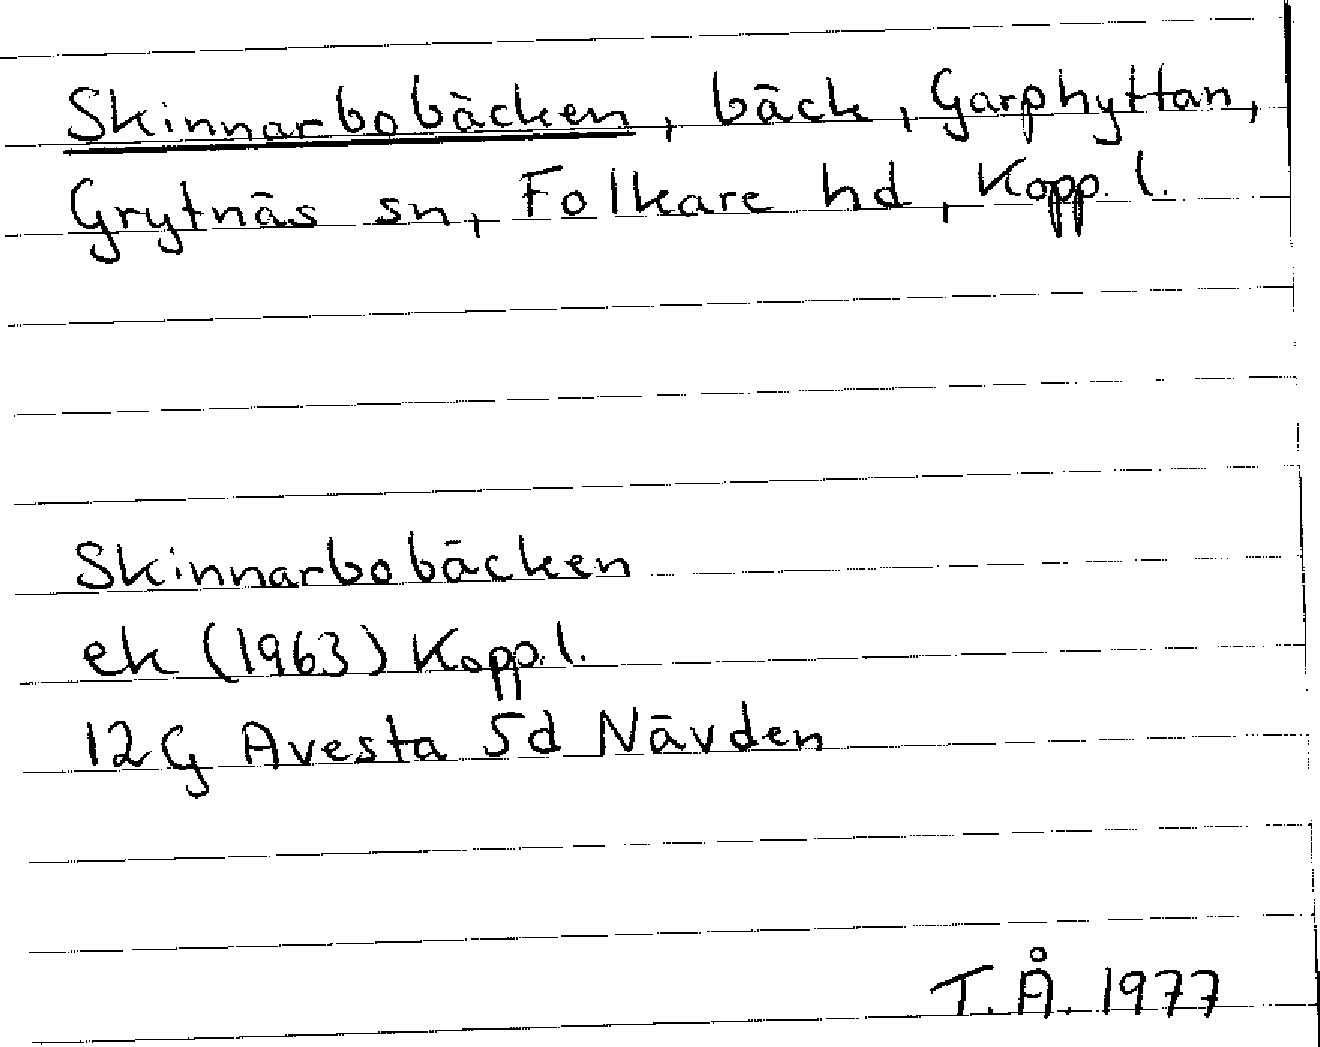 Skinnarbobäcken, bäck, Garphyttan,
Grytnäs sn, Folkare hd, Kopp. l.
Skinnarbobäcken
ek (1963) Kopp. l.
12G Avesta 5d Nävden
T.Å. 1977